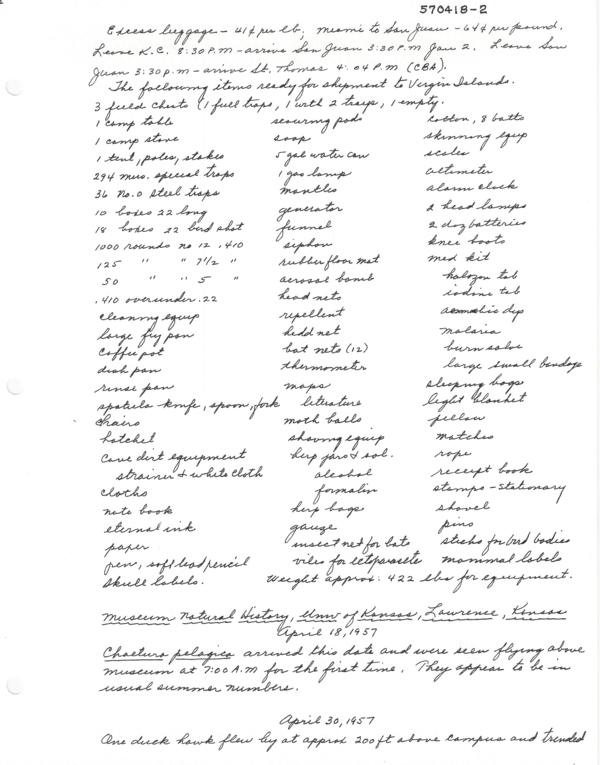 570418-2
Excess luggage - 41¢ per lb, miami to San Juan - 64¢ per pound.
Leave K.C. 8:30 P.M - arrive San Juan 3:30 P.M Jan 2. Leave San
Juan 3:30 p.m - arrive St. Thomas 4:04 P.M. (CBA).
The following items ready for shipment to Virgin Islands.
3 field chests (1 full traps, 1 with 2 trays, 1 empty.
1 camp table scouring pads cotton, 8 batts
1 camp stove soap skinning equip
1 tent, poles, stakes 5 gal water can scales
294 mus. special traps 1 gas lamp altimeter
36 no. 0 steel traps mantles alarm clock
10 boxes 22 long generator 2 head lamps
18 boxes 22 bird shot funnel 2 doz batteries
1000 rounds no 12 .410 siphon knee boots
125 " " 7 1/2 " rubber floor mat med kit
50 " " 5 " aerosol bomb halozon tab
.410 over under .22 head nets iodine tab
cleaning equip repellent dip
large fry pan bedd net malaria
coffee pot bat nets (12) burn salve
dish pan thermometer large small bandage
rinse pan maps sleeping bags
spatula - knife, spoon, fork literature light blanket
chairs moth balls pillow
hatchet shaving equip matches
Cave dirt equipment herp jars & sol. rope
strainer & white cloth alcohol receipt book
cloths formalin stamps - stationary
note book herp bags shovel
eternal ink gauge pins
paper insect net for bats sticks for bird bodies
pen, soft lead pencil viles for ectoparasite mammal labels
skull labels. Weight approx: 422 lbs for equipment.
Museum Natural History, Univ of Kansas, Lawrence, Kansas
April 18, 1957
Chaetura pelagica arrived this date and were seen flying above
museum at 7:00 A.M for the first time. They appear to be in
usual summer numbers.
April 30, 1957
One duck hawk flew by at approx 200 ft above campus and trended